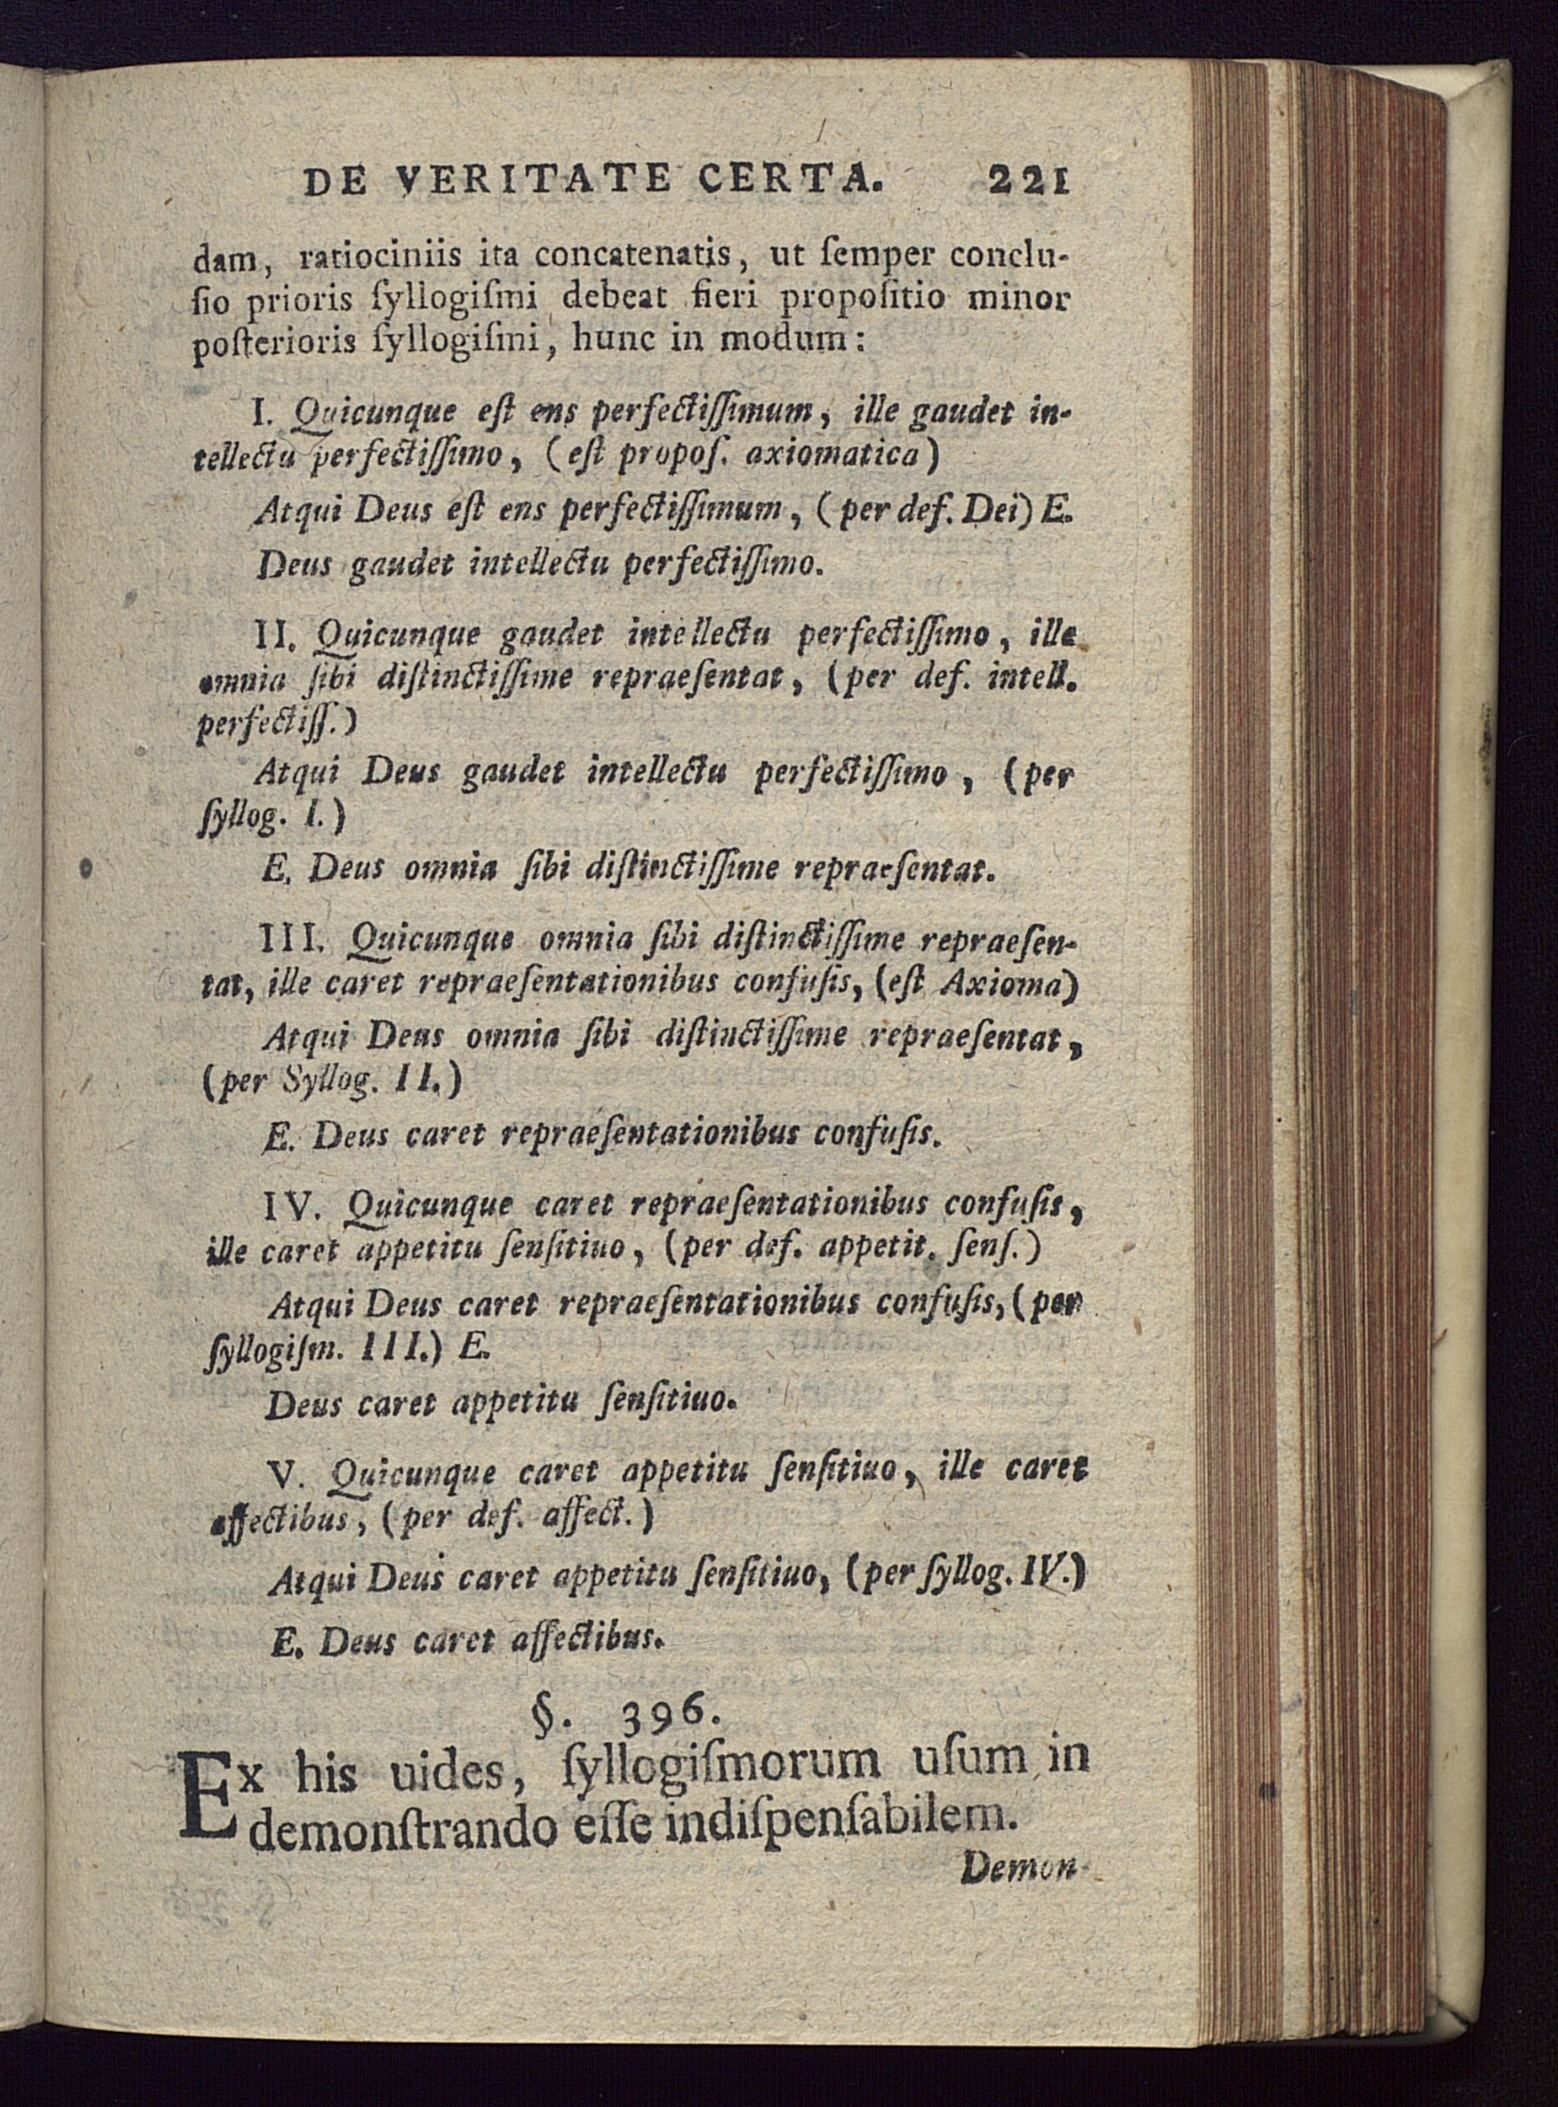 DE VERITATE CERTA. 221
dam, ratiociniis ita concatenatis, ut ſemper conclu-
ſio prioris ſyllogiſmi debeat fieri propoſitio minor
poſterioris ſyllogiſmi, hunc in modum:
I. Quicunque eſt ens perfectiſſimum, ille gaudet in-
tellectu perfectiſſimo, (eſt propoſ. axiomatica)
Atqui Deus eſt ens perfectiſſimum, (per def. Dei) E.
Deus gaudet intellectu perfectiſſimo.
II. Quicunque gaudet intellectu perfectiſſimo, ille
omnia ſibi diſtinctiſſime repraeſentat, (per def. intell.
perfectiſſ.)
Atqui Deus gaudet intellectu perfectiſſimo, (per
ſyllog. I.)
E. Deus omnia ſibi diſtinctiſſime repraeſentat.
III. Quicunque omnia ſibi diſtinctiſſime repraeſen-
tat, ille caret repraeſentationibus confuſis, (eſt Axioma)
Atqui Deus omnia ſibi diſtinctiſſime repraeſentat,
(per Syllog. II.)
E. Deus caret repraeſentationibus confuſis.
IV. Quicunque caret repraeſentationibus confuſis,
ille caret appetitu ſenſitiuo, (per def. appetit. ſenſ.)
Atqui Deus caret repraeſentationibus confuſis, (per
ſyllogiſm. III.) E.
Deus caret appetitu ſenſitiuo.
V. Quicunque caret appetitu ſenſitiuo, ille caret
affectibus, (per def. affect.)
Atqui Deus caret appetitu ſenſitiuo, (per ſyllog. IV.)
E. Deus caret affectibus.
§. 396.
Ex his uides, ſyllogiſmorum uſum in
demonſtrando eſſe indiſpenſabilem.
Demon-